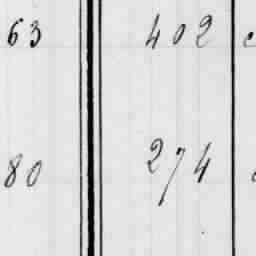 63 402
80 274